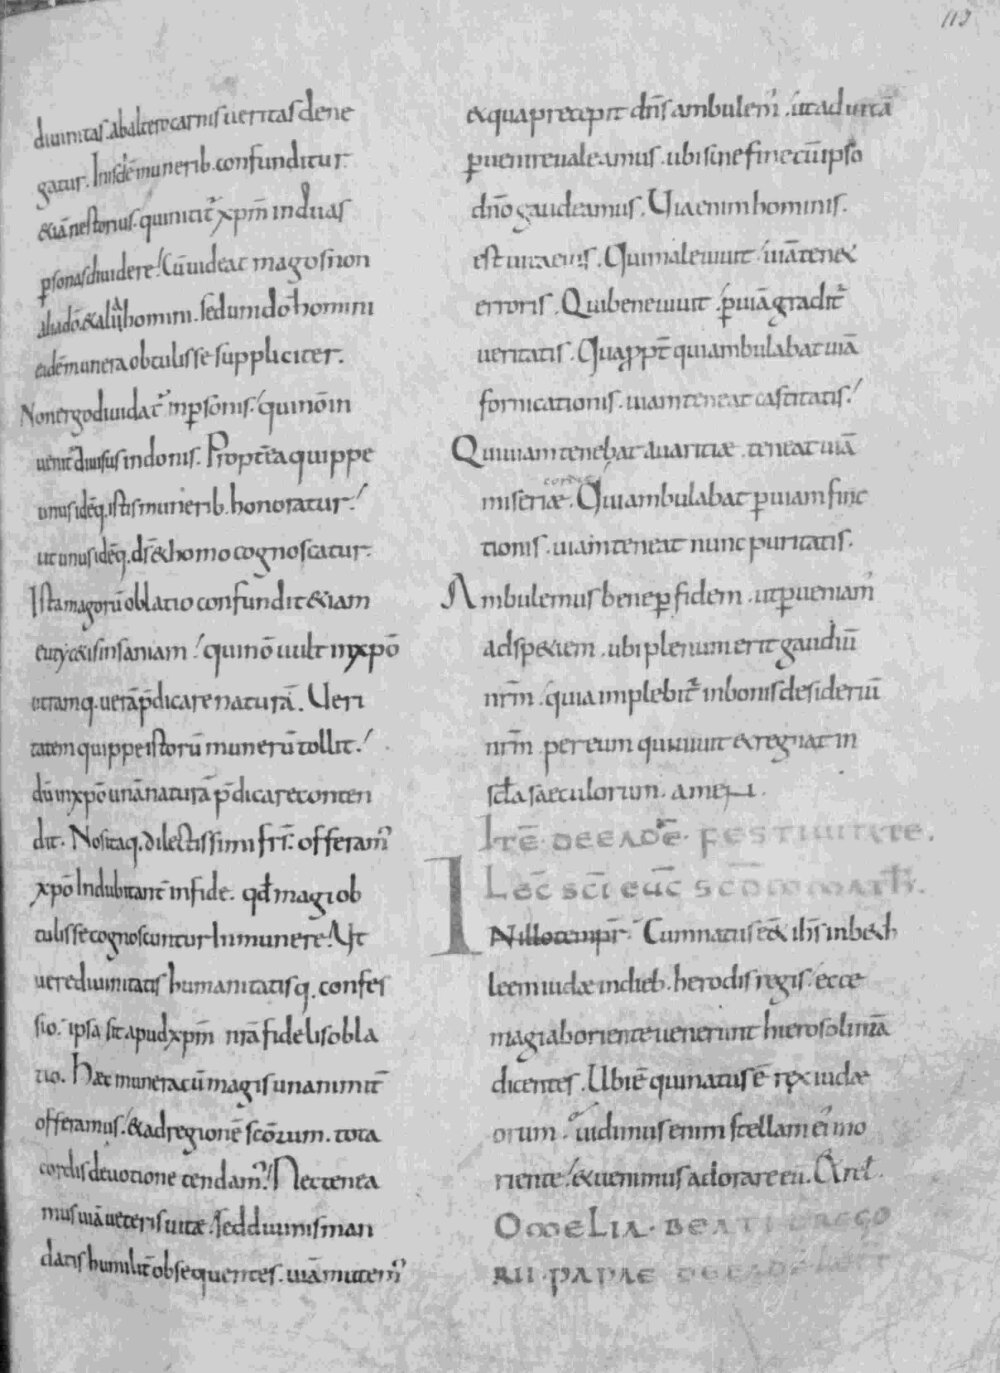 113
diuinitas. ab altero carnis ueritas dene
gatur. In isdē munerib. confunditur
& iā nestorius. qui nitit᷒ xp̄m in duas
ꝑsonas diuidere! Cū uideat magos non
alia dō. & alia homini. sed uni dō homini
eidē munera obtulisse suppliciter.
Non ergo diuidat᷒ in ꝑsonis! qui nō in
uenit᷒ diuisus in donis. Propt̄ea quippe
unus idēq. istis munerib. honoratur!
ut unus idēq. ds̄ & homo cognoscatur.
Ista magorū oblatio confundit & iam
eutyc&is insaniam! qui nō uult in xp̄o
utramq. uerā p̄dicare naturā. Ueri
tatem quippe istorū munerū tollit!
dū in xp̄o unā naturā p̄dicare conten
dit. Nos itaq. dilectissimi fr̄s. offeram᷒
xp̄o Indubitant̄ in fide. qđ magi ob
tulisse cognoscuntur In munere! Ut
uere diuinitatis humanitatisq. confes
sio. ipsa sit apud xp̄m nr̄a fidelis obla
tio. Haec munera cū magis unanimit̄
offeramus! & ad regionē sc̄orum. tota
cordis deuotione tendam᷒! Nec tenea
mus uiā ueteris uitae. sed diuinis man
datis humilit̄ obsequentes. uiā mutem᷒
& qua precepit dn̄s ambulem᷒. ut ad uitā
ꝑuenire ualeamus. ubi sine fine cū ipso
dn̄o gaudeamus. Uia enim hominis.
est uita eius. Qui male uiuit! uiā ten&
erroris. Qui bene uiuit. ꝑ uiā gradit᷒
ueritatis. Quappt̄ qui ambulabat uiā
fornicationis. uiam teneat castitatis!
Qui uiam tenebat auaritiae. teneat uiā
cordie
miseriae. Qui ambulabat ꝑ uiam finc
tionis. uiam teneat nunc puritatis.
Ambulemus bene ꝑ fidem. ut ꝑueniam᷒
ad sp&iem. ubi plenum erit gaudiū
nr̄m. quia implebit᷒ in bonis desideriū
nr̄m per eum qui uiuit & regnat in
sc̄la saeculorum. amen.
Itē de eadē festiuitate.
Lec̄ sc̄i euḡ sc̄dm math̄.
In illo tempr̄. Cum natus ēe& ih̄s in b&h
leem iudae in dieb. herodis regis! ecce
magi ab oriente uenerunt hierosolimā
dicentes. Ubi ē qui natus ē rex iudae
orum. uidimus enim stellam ei᷒ in o
riente! & uenimus adorare eū. & rel̄.
Omelia beati grego
rii papae de eadē lect̄